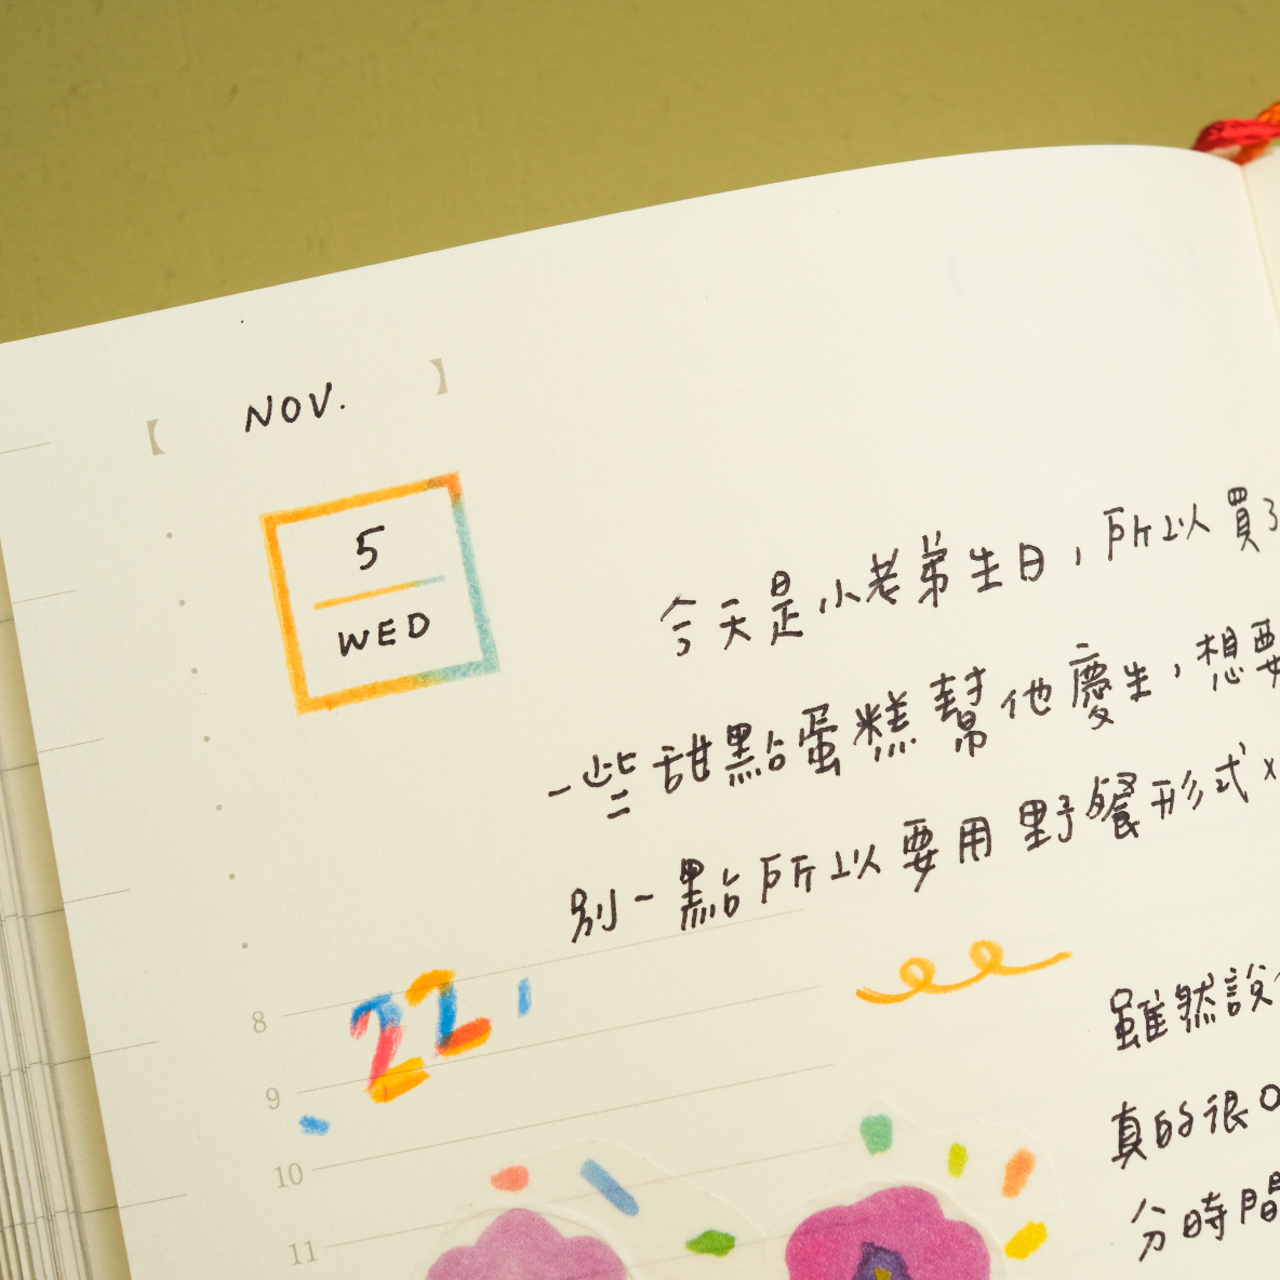 【 NOV. 】
5
WED
今天是小老弟生日，所以買了
一些甜點蛋糕幫他慶生，想要
別一點所以要用野餐形式
22
8
9
10
11
雖然說
真的很
分時間